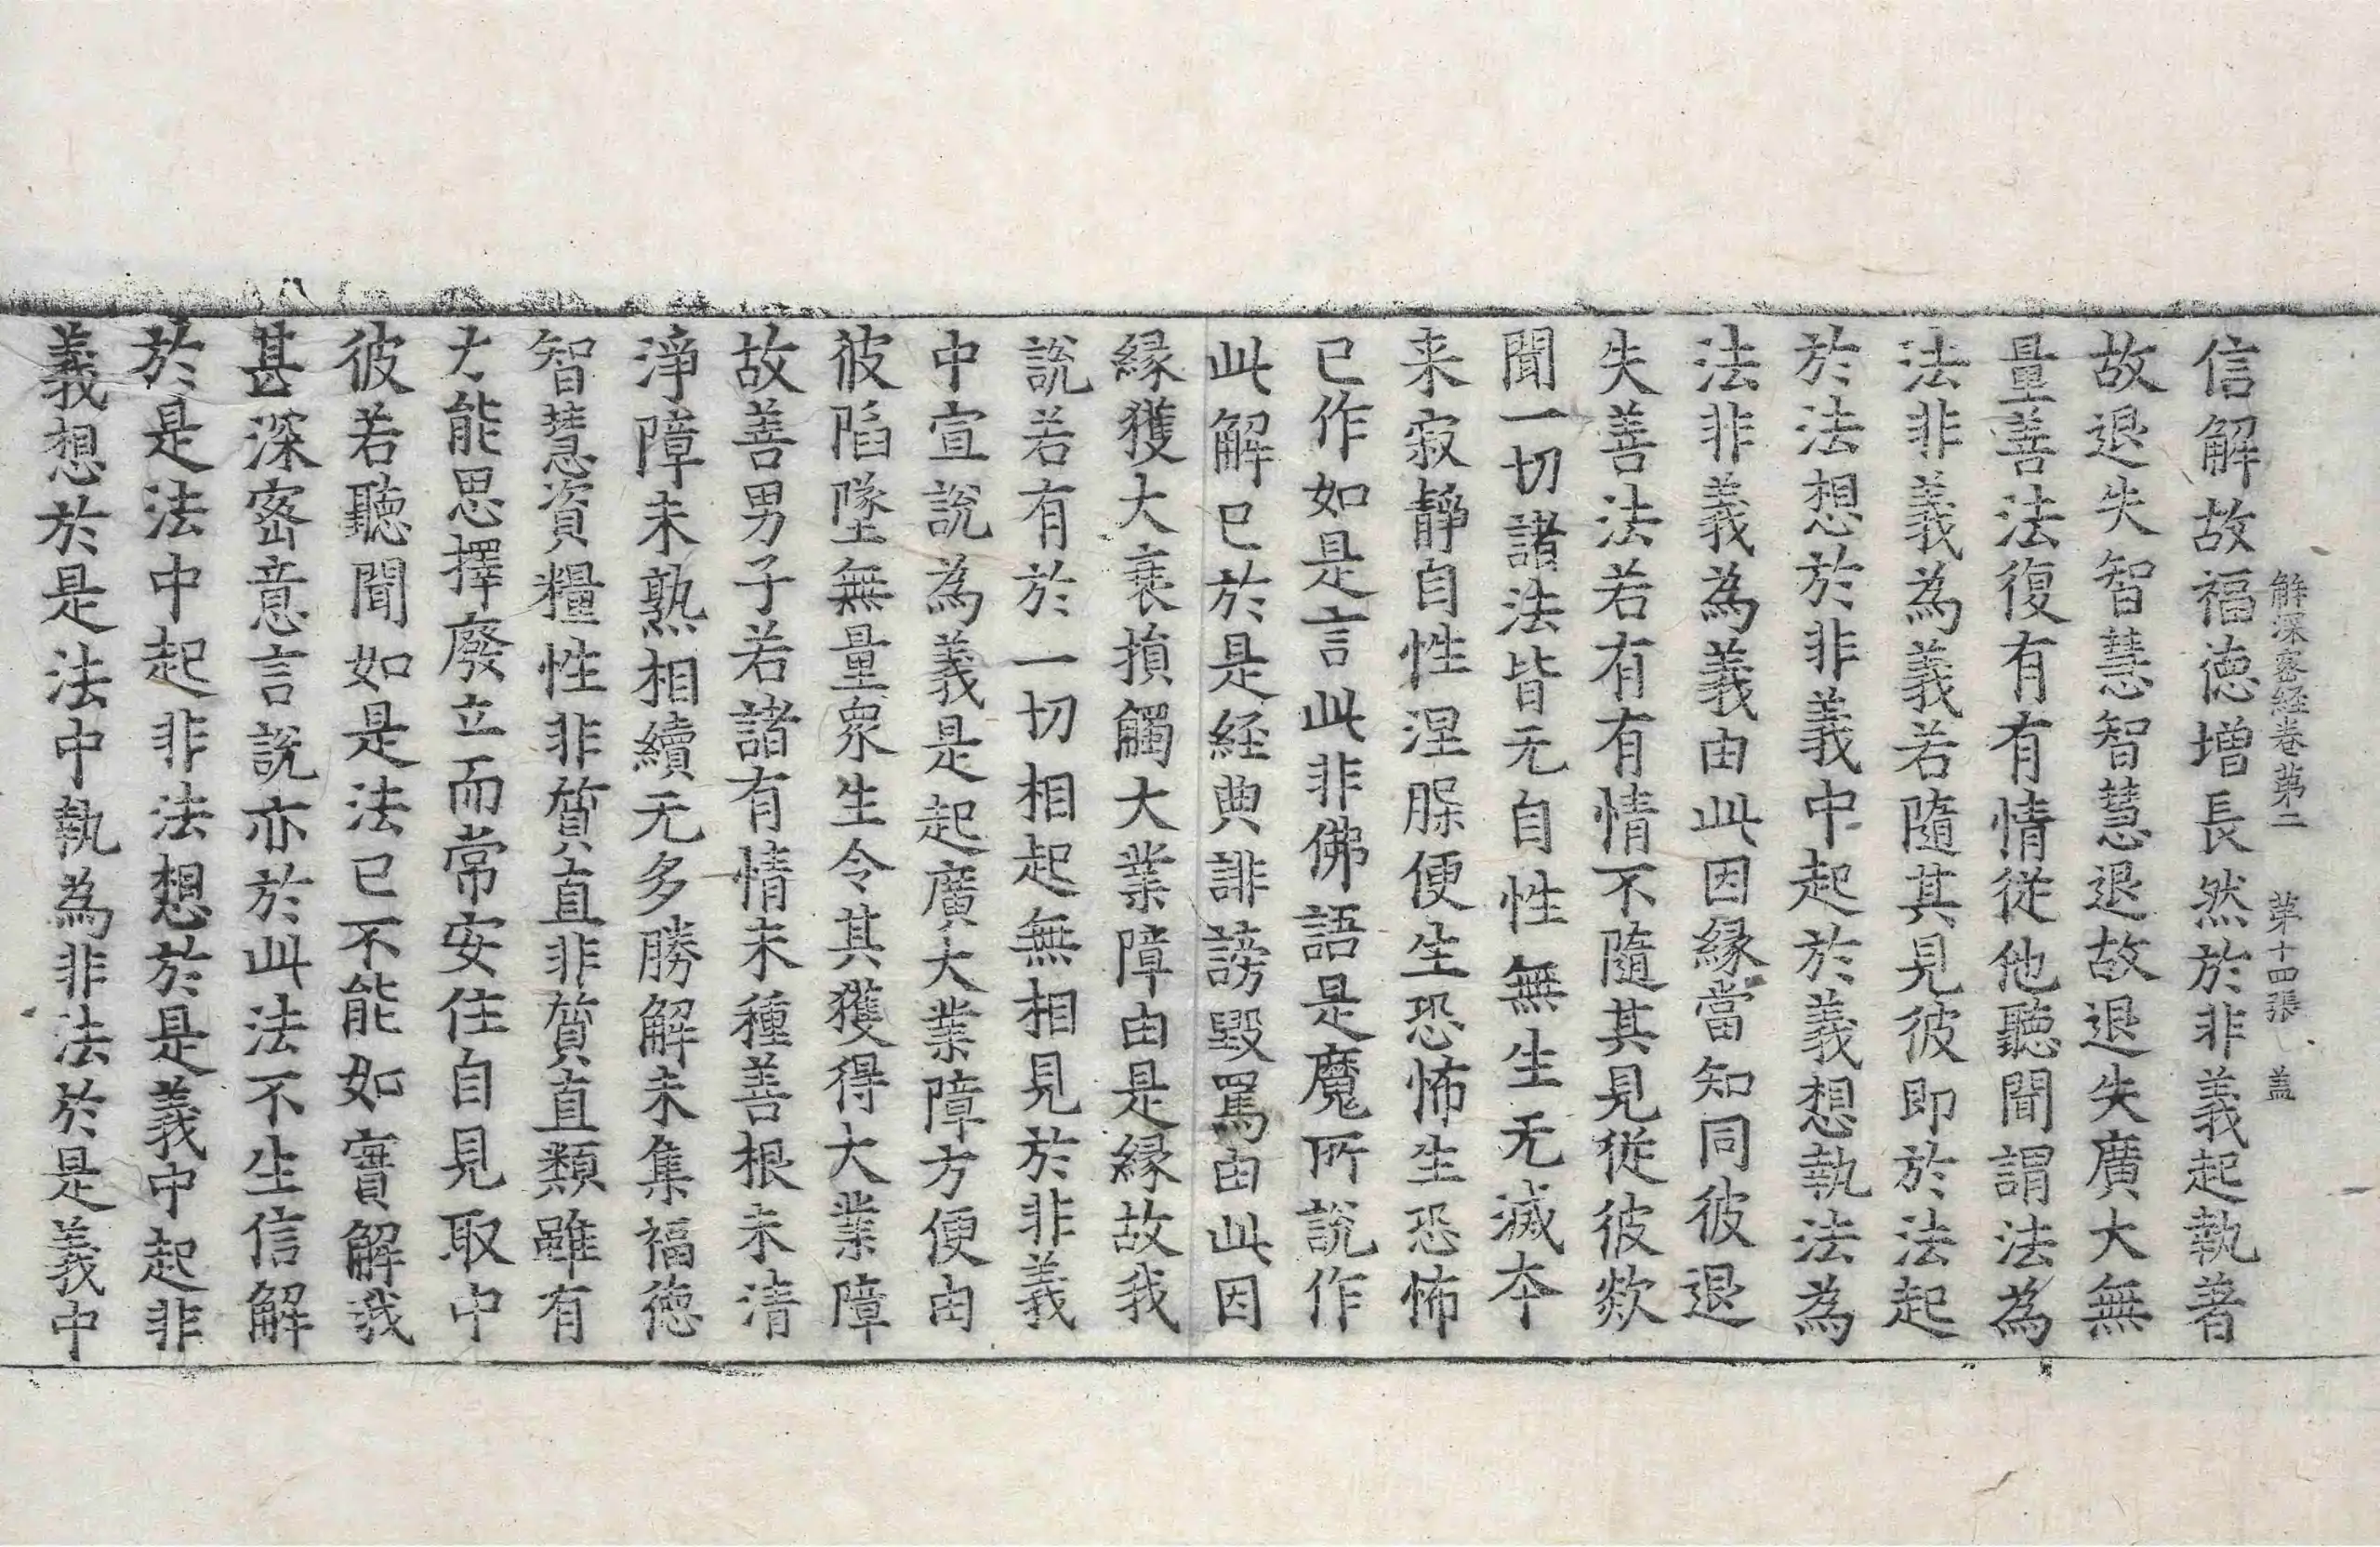 解深密経巻第二　第十四張　盖
信解故福徳増長然於非義起執著
故退失智慧智慧退故退失廣大無
量善法復有有情從他聽聞謂法為
法非義為義若隨其見彼即於法起
於法想於非義中起於義想執法為
法非義為義由此因縁當知同彼退
失善法若有有情不隨其見從彼欻
聞一切諸法皆无自性無生无滅本
来寂靜自性涅槃便生恐怖生恐怖
已作如是言此非佛語是魔所說作
此解已於是経典誹謗毀罵由此因
縁獲大衰損觸大業障由是縁故我
說若有於一切相起無相見於非義
中宣說為義是起廣大業障方便由
彼陷墜無量衆生令其獲得大業障
故善男子若諸有情未種善根未清
淨障未熟相續无多勝解未集福徳
智慧資糧性非質直非質直類雖有
力能思擇廢立而常安住自見取中
彼若聽聞如是法已不能如實解我
甚深密意言說亦於此法不生信解
於是法中起非法想於是義中起非
義想於是法中執為非法於是義中